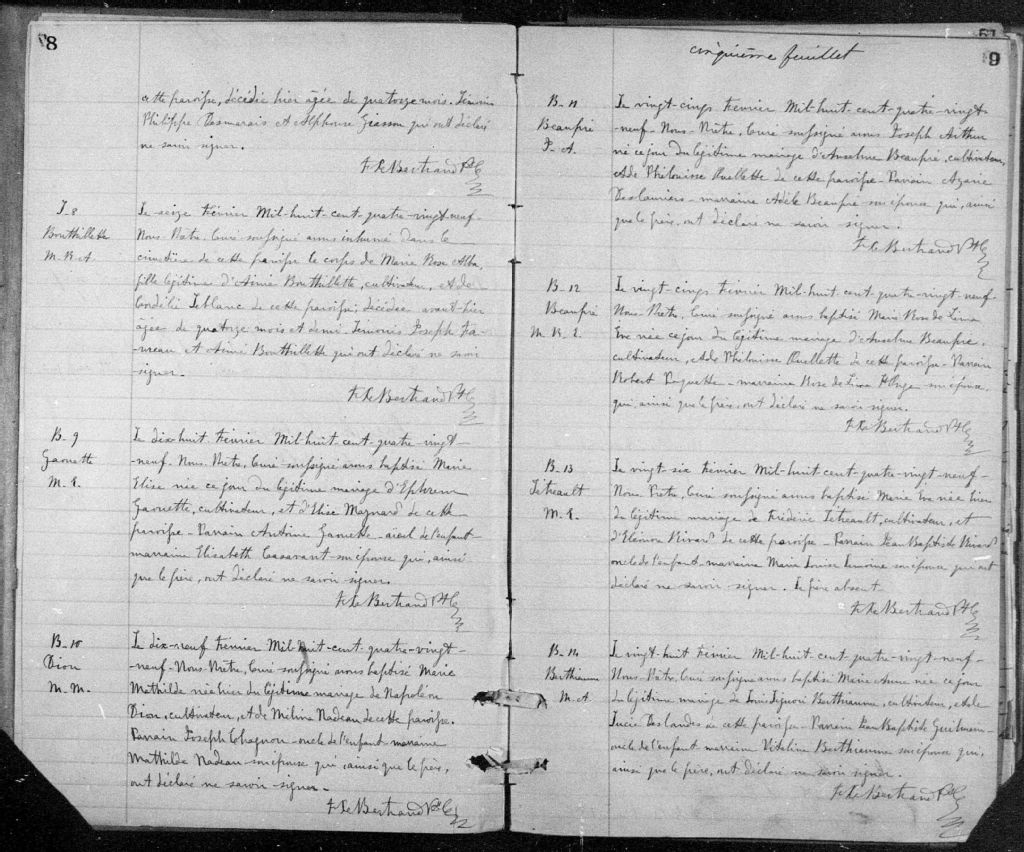 8
cette paroisse, décédée hier âgée de quatorze mois. Témoins
Philippe Desmarais et Alphonse Giasson qui ont déclaré
ne savoir signer.
F. X. Bertrand Ptre
Le seize Février Mil-huit-cent-quatre-vingt-neuf-
S-8
Bouthillette
M. R. A.
Nous-Prêtre, Curé soussigné avons inhumé dans le
cimetière de cette paroisse le corps de Marie Rose Alba,
fille légitime d'Aimé Bouthillette, cultivateur, et de
Cordélie Leblanc de cette paroisse; décédée avant-hier
âgée de quatorze mois et demi. Témoins Joseph
et Aimé Bouthillette qui ont déclaré ne savoir
signer.-
F. X. Bertrand Ptre
B-9
Gaouette
M. E.
Le dix-huit Février Mil-huit-cent-quatre-vingt-
-neuf-Nous-Prêtre, Curé soussigné avons baptisé Marie
Elise née ce jour du légitime mariage d'Ephrem
Gaouette, cultivateur, et d'Elise Maynard de cette
paroisse-Parrain Antoine Gaouette-aïeul de l'enfant-
marraine Elisabeth Casavant son épouse qui, ainsi
que le père, ont déclaré ne savoir signer.
F. X. Bertrand Ptre
B-10
Dion
M. M.
Le dix-neuf Février Mil-huit-cent-quatre-vingt-
-neuf-Nous-Prêtre, Curé soussigné avons baptisé Marie
Mathilde née hier du légitime mariage de Napoléon
Dion, cultivateur, et de Mélina Nadeau de cette paroisse.
Parrain Joseph Chagnon-oncle de l'enfant-marraine
Mathilde Nadeau-son épouse qui, ainsi que le père,
ont déclaré ne savoir signer-
F. X. Bertrand Ptre
cinquième feuillet
9
B-11
Beaupré
J. A.
Le vingt-cinq Février Mil-huit-cent-quatre-vingt-
neuf-Nous-Prêtre, Curé soussigné avons Joseph Arthur
né ce jour du légitime mariage d'Anselme Beaupré, cultivateur,
et de Philouise Ouellette de cette paroisse-Parrain Azarie
Deslauriers-marraine Adèle Beaupré son épouse qui, ainsi
que le père, ont déclaré ne savoir signer.
F. X. Bertrand Ptre
B-12
Beaupré
M. R. E.
Le vingt-cinq Février Mil-huit-cent-quatre-vingt-neuf-
Nous-Prêtre, Curé soussigné avons baptisé Marie Rose de Lima
Eve née ce jour du légitime mariage d'Anselme Beaupré,
cultivateur, et de Philouise Ouellette de cette paroisse-Parrain
Robert Paquette-marraine Rose de Lima son épouse
qui, ainsi que le père, ont déclaré ne savoir signer.
F. X. Bertrand Ptre
B-13
Tétreault
M. E.
Le vingt-six Février Mil-huit-cent-quatre-vingt-neuf-
Nous-Prêtre, Curé soussigné avons baptisé Marie Eve née hier
du légitime mariage de Frédéric Tétreault, cultivateur, et
d'Eléonore Birard de cette paroisse-Parrain Jean Baptiste Birard
oncle de l'enfant-marraine Marie Louise Lemoine son épouse qui ont
déclaré ne savoir signer. Le père absent.
F. X. Bertrand Ptre
B-14
Berthiaume
M. A.
Le vingt-huit Février Mil-huit-cent-quatre-vingt-neuf-
Nous-Prêtre, Curé soussigné avons baptisé Marie Anne née ce jour
du légitime mariage de Louis Liguori Berthiaume, cultivateur, et de
Lucie Deslandes de cette paroisse-Parrain Jean Baptiste
oncle de l'enfant marraine Vitaline Berthiaume son épouse qui,
ainsi que le père, ont déclaré ne savoir signer.
F. X. Bertrand Ptre